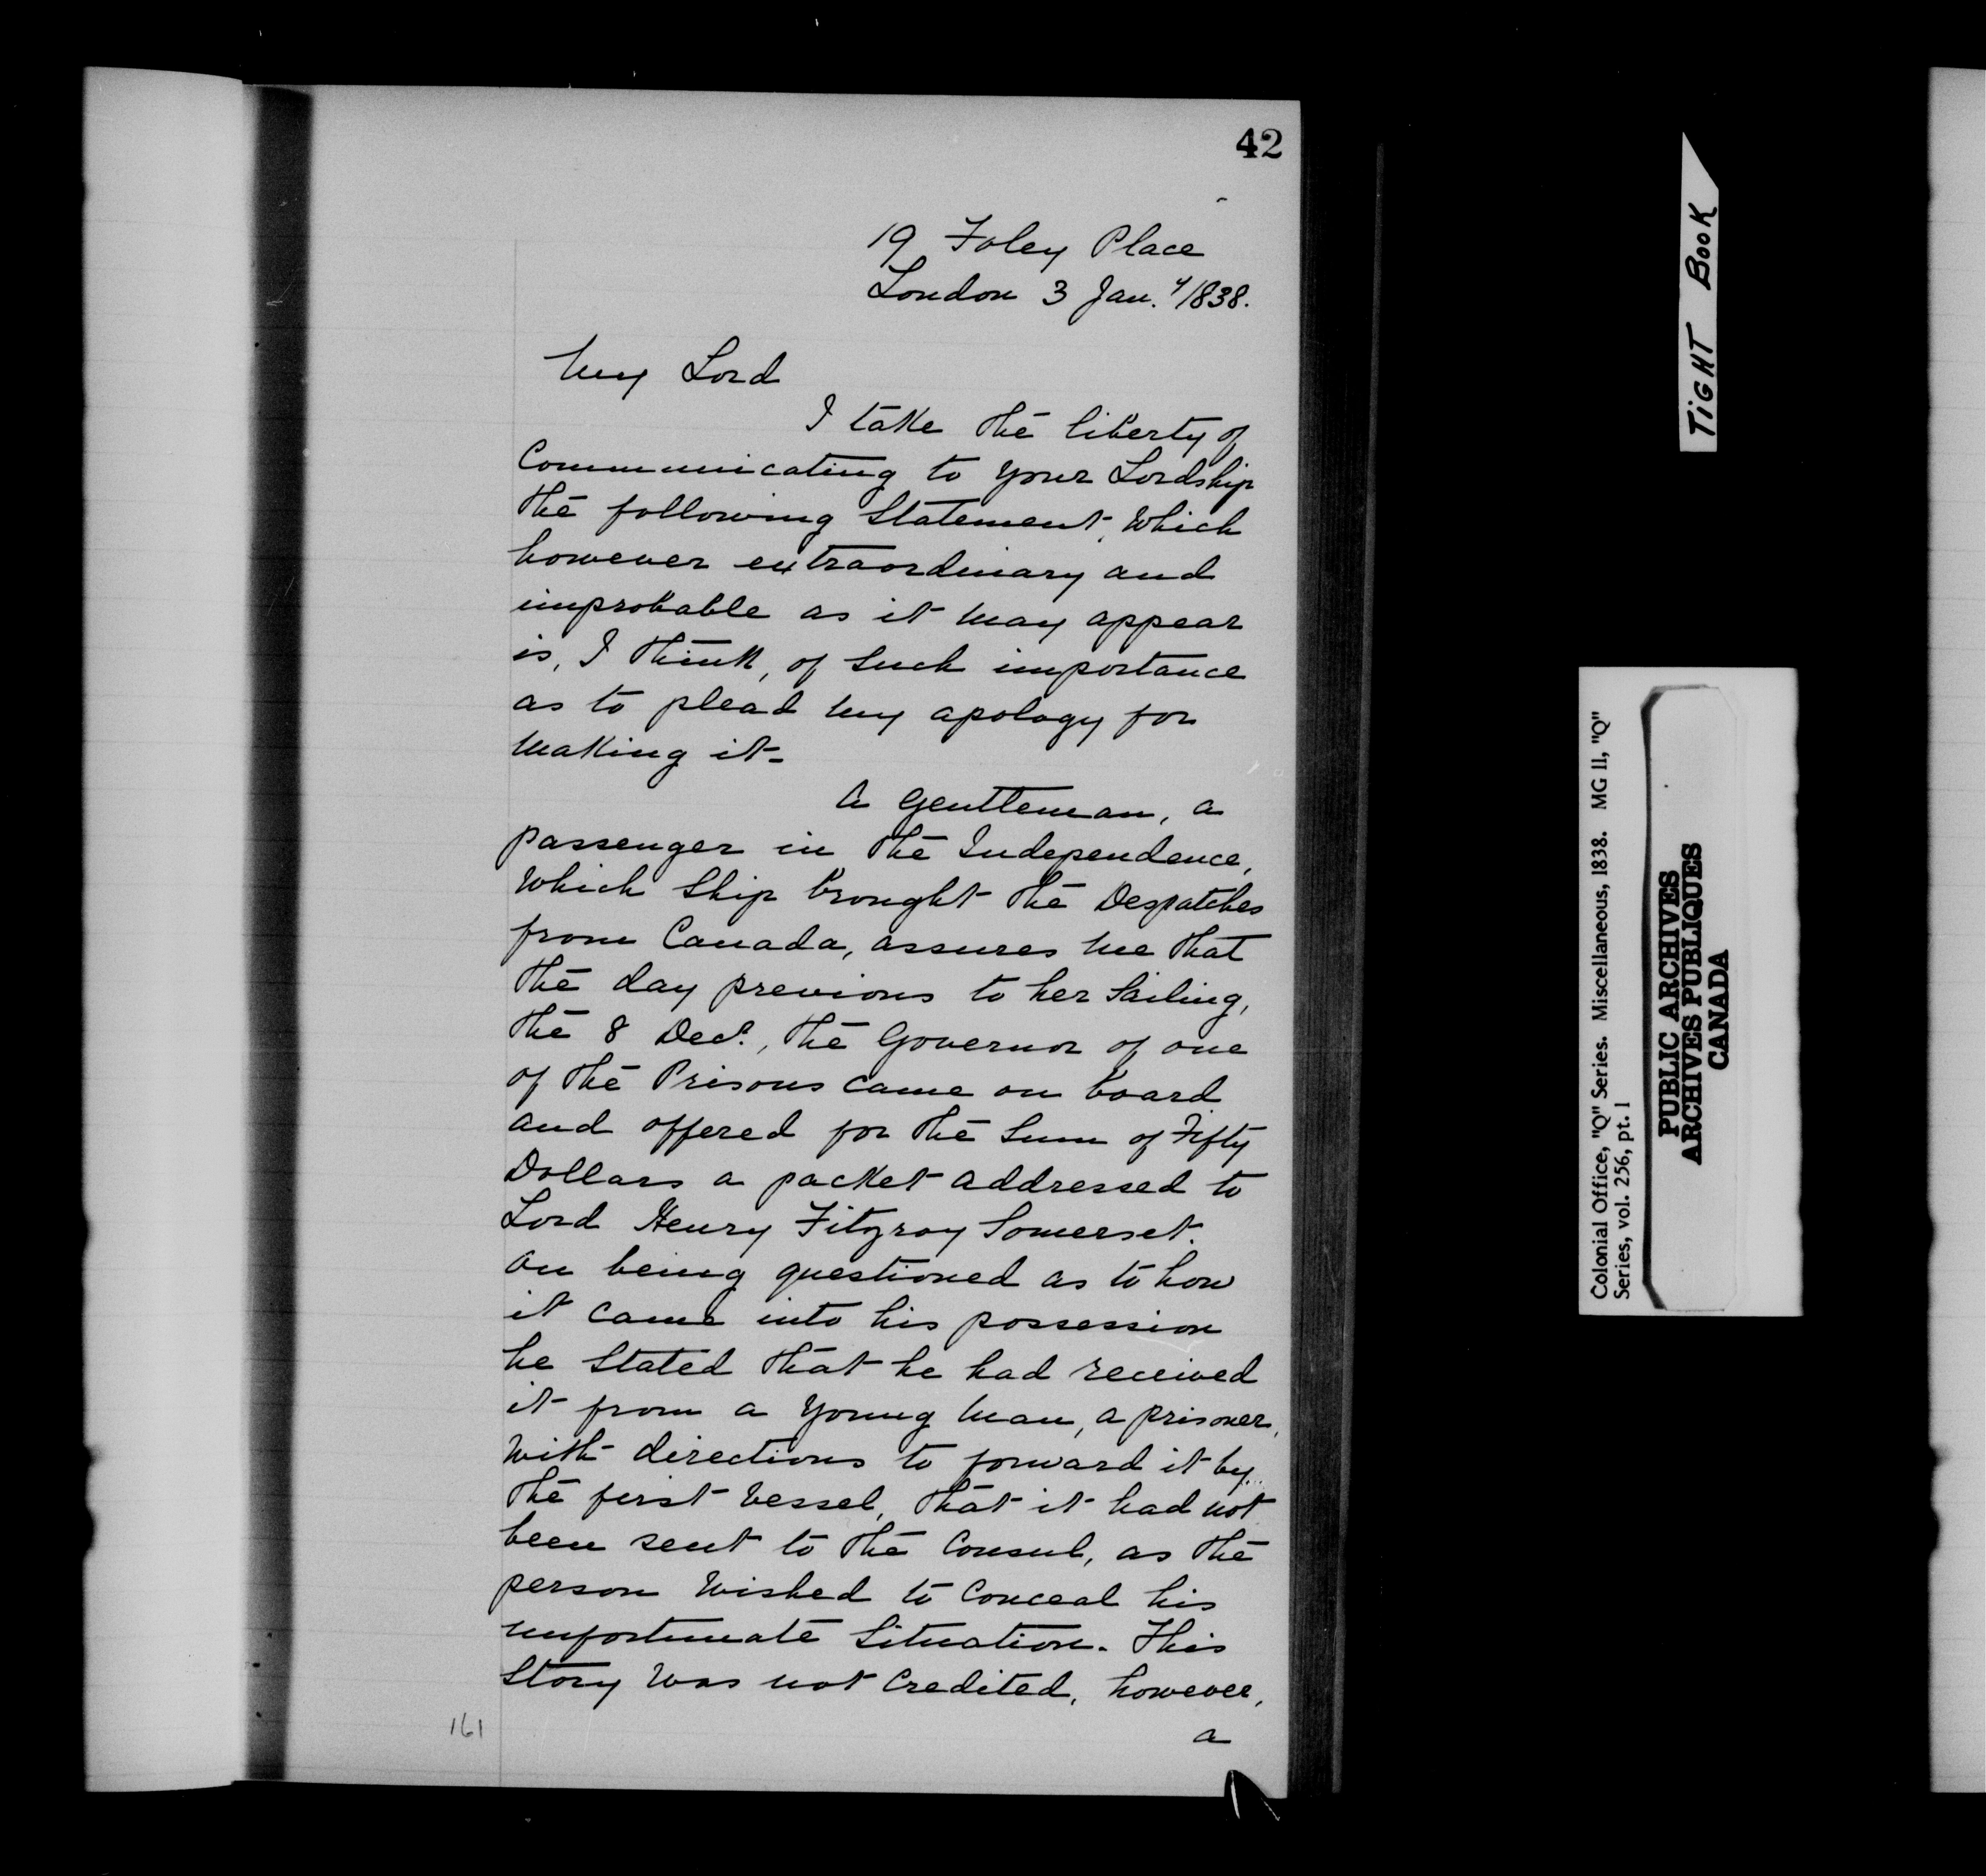 42
19 Foley Place
London 3 Jan.y 1838.
My Lord
I take the liberty of
Communicating to your Lordship
the following Statement, which
however extraordinary and
improbable as it may appear
is, I think, of such importance
as to plead my apology for
making it-
A Gentleman, a
passenger in the Independence,
which Ship brought the Despatches
from Canada, assures me that
the day previous to her sailing,
the 8 Decr., the Governor of one
of the Prisons came on board
and offered for the sum of Fifty
Dollars a packet addressed to
Lord Henry Fitzroy Somerset.
On being questioned as to how
it came into his possession
he stated that he had received
it from a young man, a prisoner,
with directions to forward it by
the first vessel, that it had not
been sent to the Consul, as the
person wished to conceal his
unfortunate situation. This
Story was not credited, however,
a
161
TIGHT BOOK
Colonial Office, "Q" Series. Miscellaneous, 1838. MG 11, "Q"
Series, vol. 256, pt. 1
PUBLIC ARCHIVES
ARCHIVES PUBLIQUES
CANADA